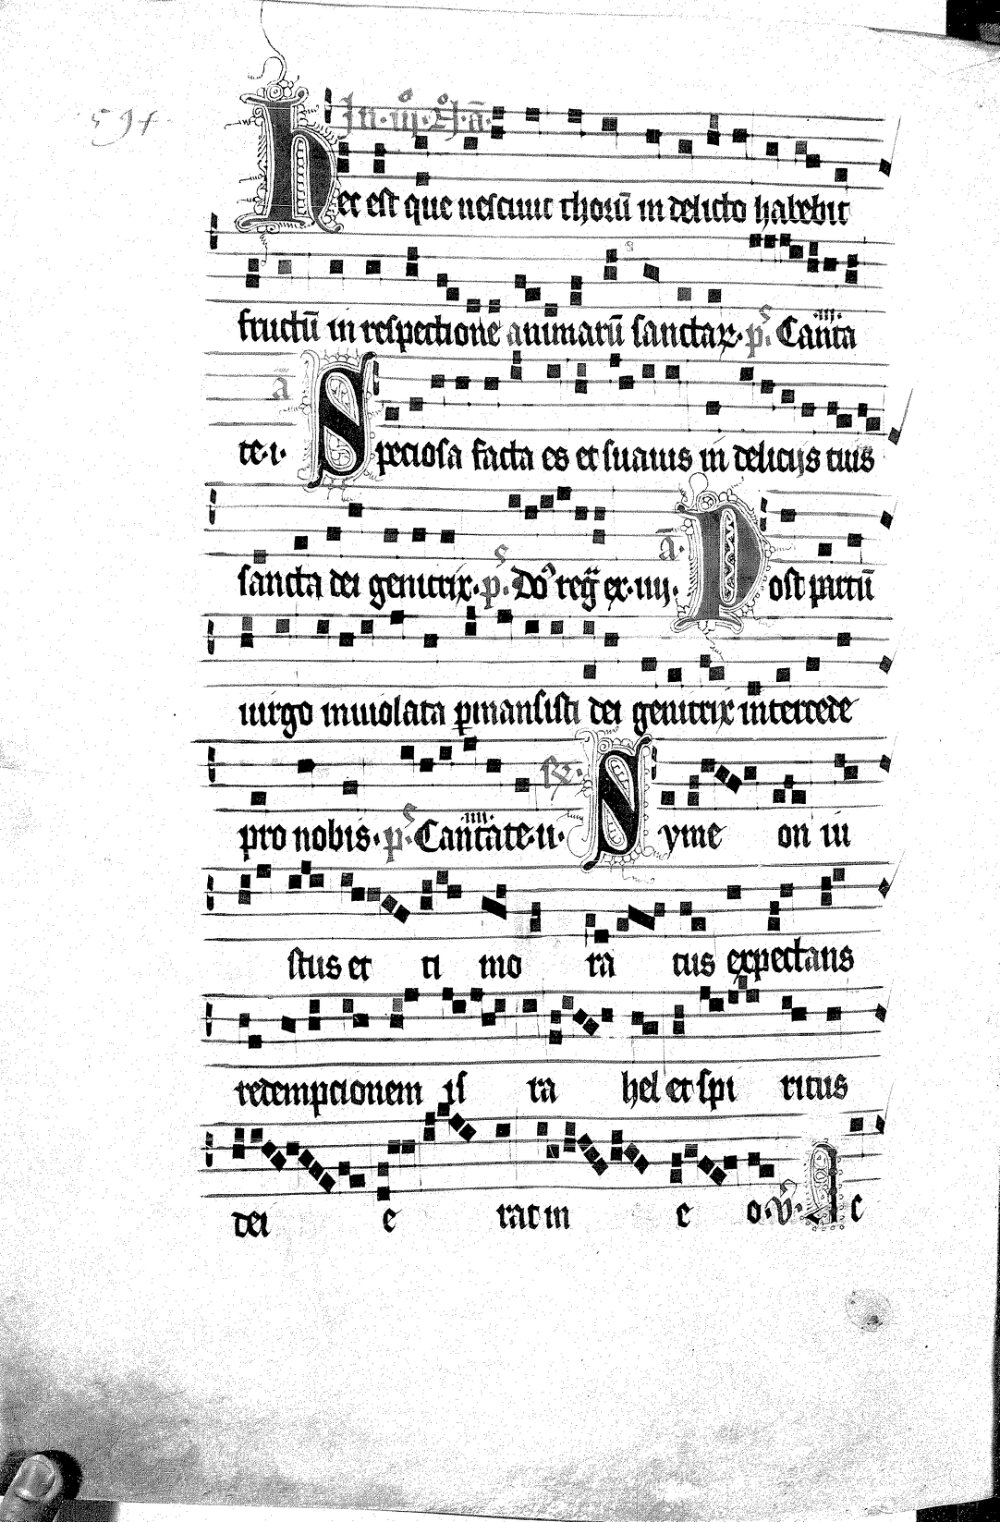 594
In iij. No. añ.
Hec est que nesciuit thorū in delicto habebit
fructū in respectione animarū sanctaꝝ. ps. Canta
te.i. añ. Speciosa facta es et suauis in delicijs tuis
sancta dei genitrix. ps. Dos regͣ. ex. iiij. añ. Post partū
uirgo inuiolata ꝑmansisti dei genitrix intercede
pro nobis. ps. Cantate.ii. ℟. Symeon iu
stus et timoratus expectans
redempcionem israhel et spiritus
dei erat in eo. ℣. Ac